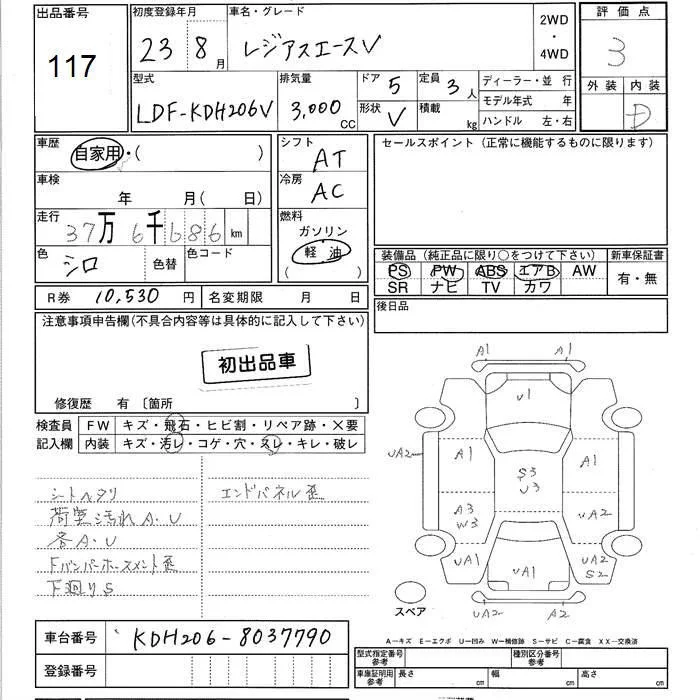 出品番号
117
初度登録年月
23 8月
車名・グレード
レジアスエースV
2WD
・
4WD
評価点
3
外装 内装
D
型式
LDF-KDH206V
排気量
3,000 CC
ドア 5
形状 V
定員 3人
積載 kg
ディーラー・並 行
モデル年式 年
ハンドル 左・右
車歴
自家用・( )
シフト
AT
セールスポイント (正常に機能するものに限ります)
車検
年 月( 日)
冷房
AC
走行
37万 6千 686 km
燃料
ガソリン
軽油
( )
色
シロ
色替
色コード
装備品 (純正品に限り○をつけて下さい)
新車保証書
PS PW ABS エアB AW
有・無
SR ナビ TV カワ
R券 10,530 円
名変期限 月 日
後日品
注意事項申告欄(不具合内容等は具体的に記入して下さい)
初出品車
修復歴 有 〔箇所 〕
検査員
記入欄
FW キズ・飛石・ヒビ割・リペア跡・×要
内装 キズ・汚レ・コゲ・穴・スレ・キレ・破レ
シートヘタリ
エンドパネル歪
荷室汚れA.U
各A.U
Fバンパーホースメント歪
下廻りS
A1 A1
U1
UA2
A1
S3
U3
A1
A3
W3
UA2
UA1
UA1
UA2
S2
スペア
UA2 A2
A-キズ E-エクボ U-凹み W-補修跡 S-サビ C-腐食 XX-交換済
車台番号
KDH206-8037790
登録番号
型式指定番号
参考
種別区分番号
参考
車庫証明用
参考
長さ cm
幅 cm
高さ cm